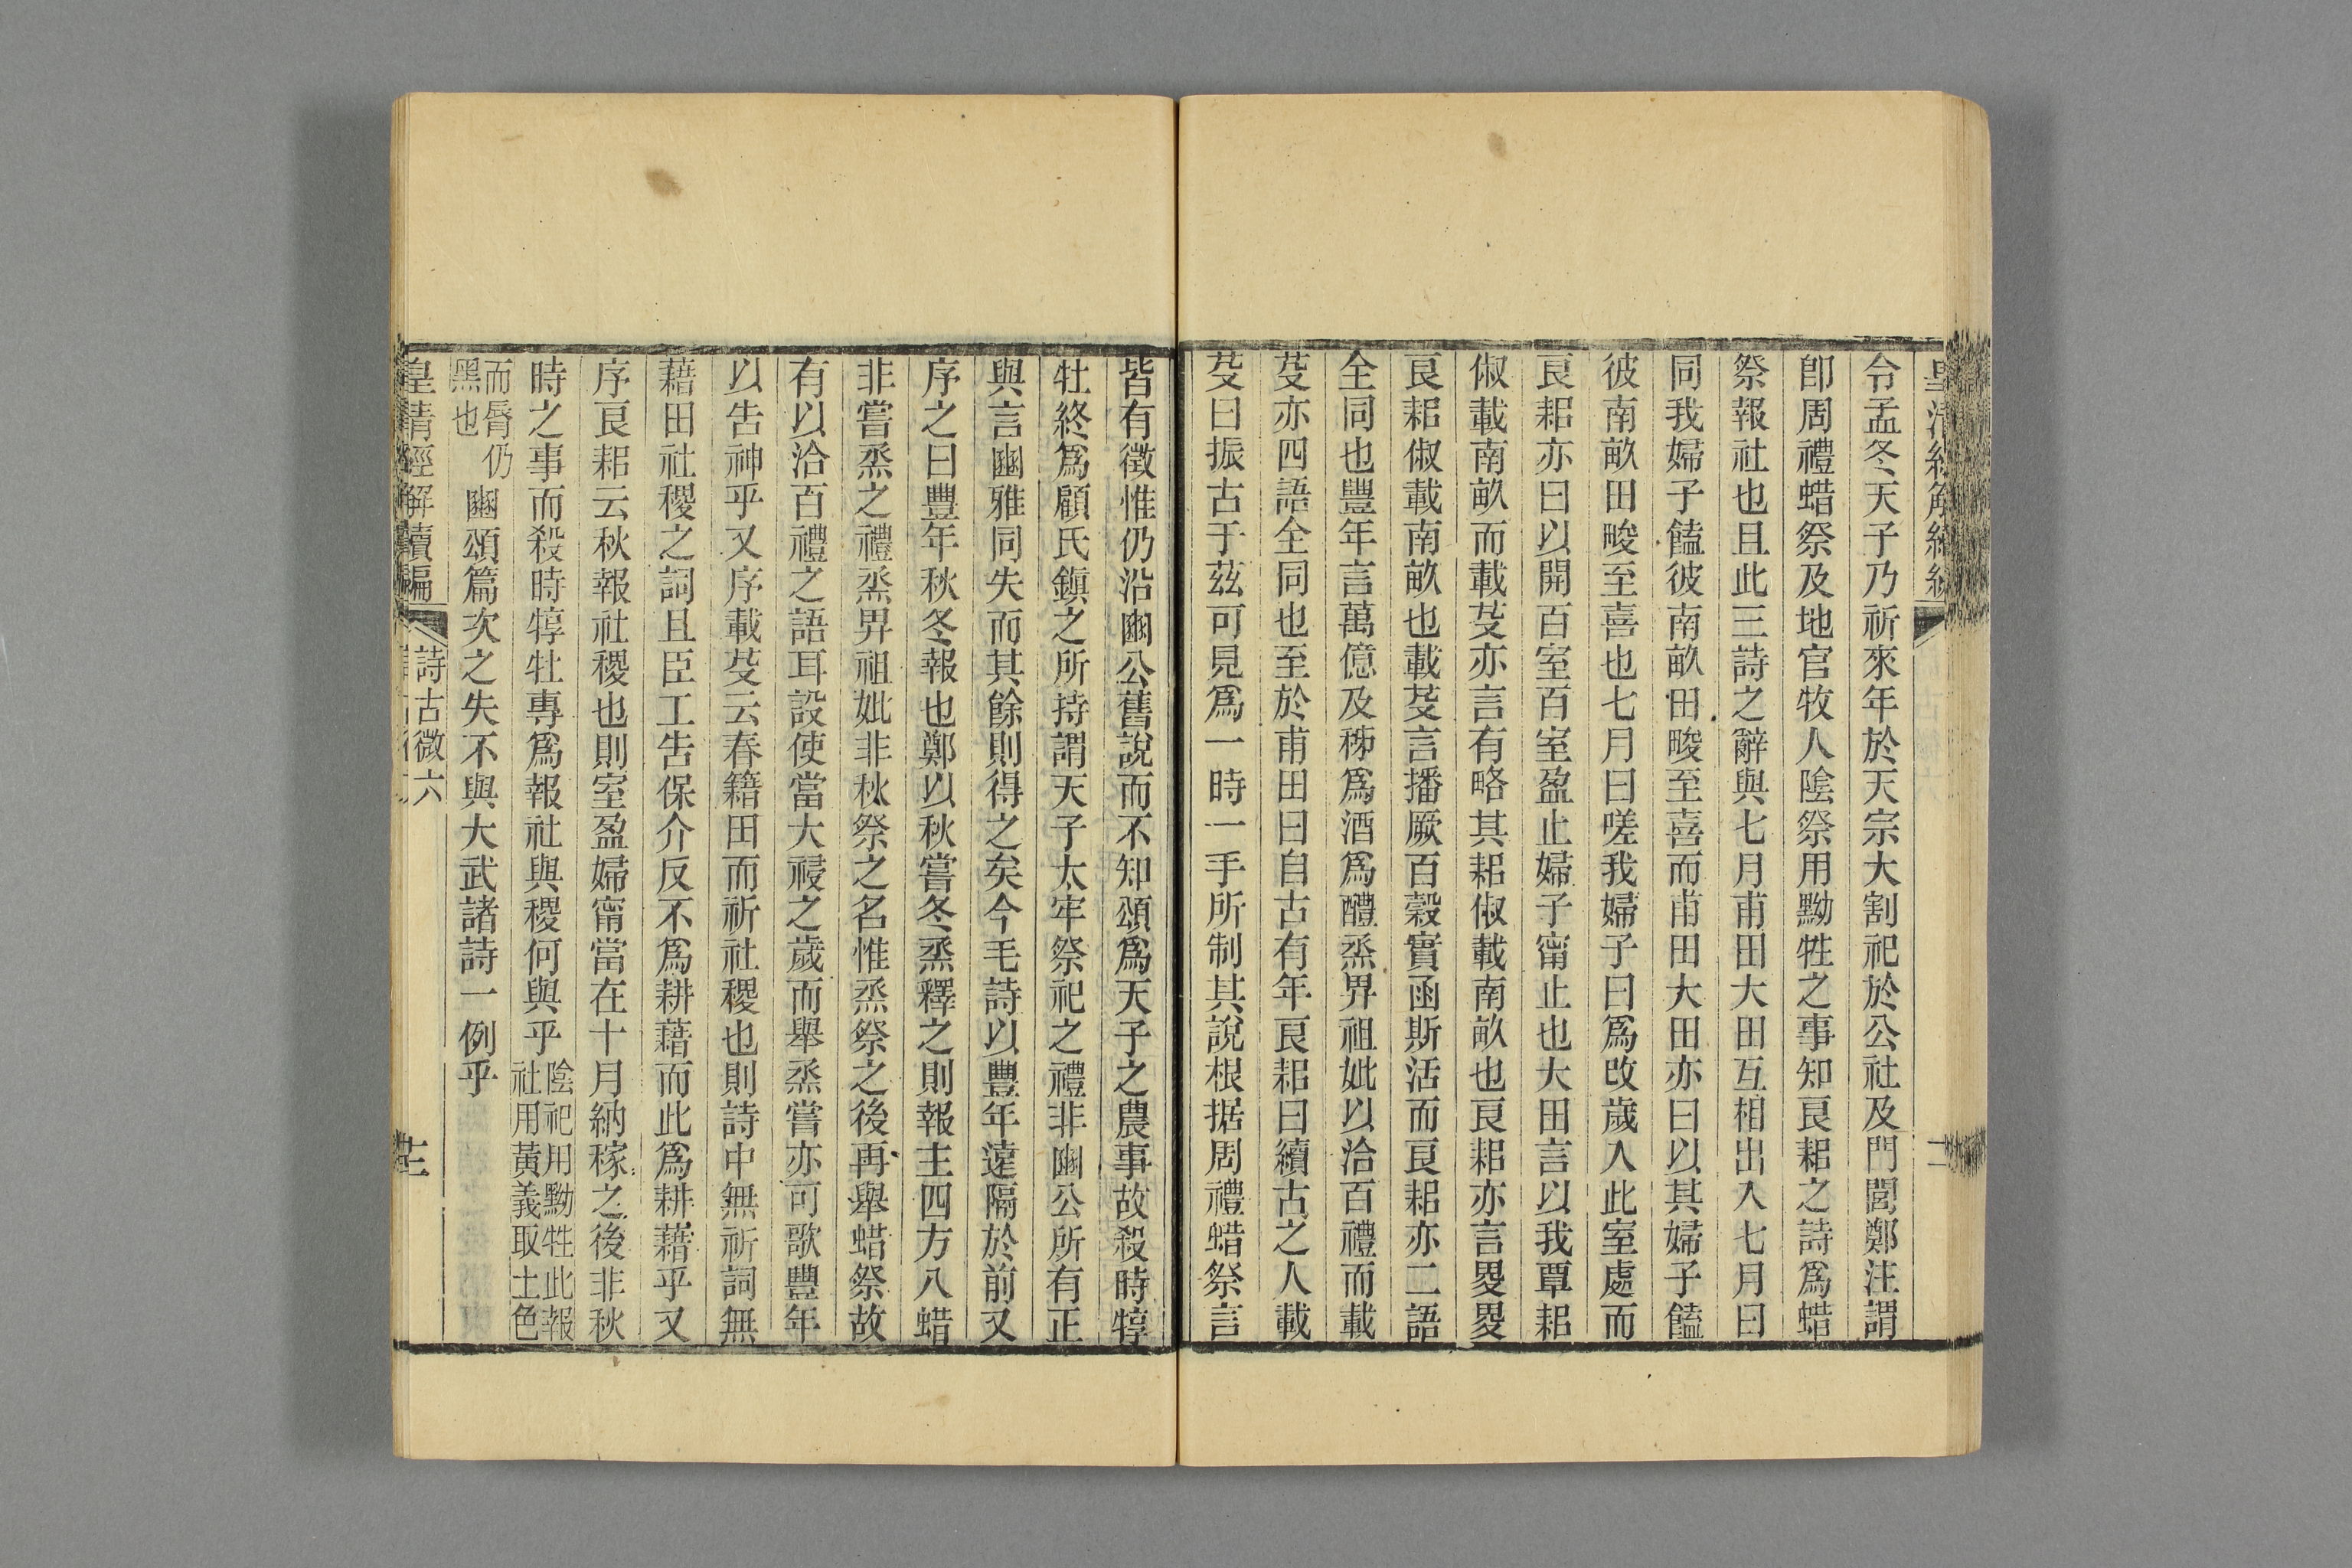 令孟冬天子乃祈來年於天宗大割祀於公社及門閭鄭注謂
卽周禮蜡祭及地官牧人陰祭用黝牲之事知良耜之詩爲蜡
祭報社也且此三詩之辭與七月甫田大田互相出入七月曰
同我婦子饁彼南畝田畯至喜而甫田大田亦曰以其婦子饁
彼南畝田畯至喜也七月曰嗟我婦子曰爲改歲入此室處而
良耜亦曰以開百室百室盈止婦子甯止也大田言以我覃耜
俶載南畝而載芟亦言有略其耜俶載南畝也良耜亦言畟畟
良耜俶載南畝也載芟言播厥百穀實函斯活而良耜亦二語
全同也豐年言萬億及秭爲酒爲醴烝畀祖妣以洽百禮而載
芟亦四語全同也至於甫田曰自古有年良耜曰續古之人載
芟曰振古于茲可見爲一時一手所制其說根据周禮蜡祭言
皆有徵惟仍沿豳公舊說而不知頌爲天子之農事故殺時犉
牡終爲顧氏鎭之所持謂天子太牢祭祀之禮非豳公所有正
與言豳雅同失而其餘則得之矣今毛詩以豐年遠隔於前又
序之曰豐年秋冬報也鄭以秋嘗冬烝釋之則報主四方八蜡
非嘗烝之禮烝畀祖妣非秋祭之名惟烝祭之後再舉蜡祭故
有以洽百禮之語耳設使當大祲之歲而舉烝嘗亦可歌豐年
以吿神乎又序載芟云春籍田而祈社稷也則詩中無祈詞無
藉田社稷之詞且臣工吿保介反不爲耕藉而此爲耕藉乎又
序良耜云秋報社稷也則室盈婦甯當在十月納稼之後非秋
時之事而殺時犉牡專爲報社與稷何與乎陰祀用黝牲此報
社用黃義取土色
而脣仍
黑也
豳頌篇次之失不與大武諸詩一例乎
皇清經解續編
詩古微六
十二